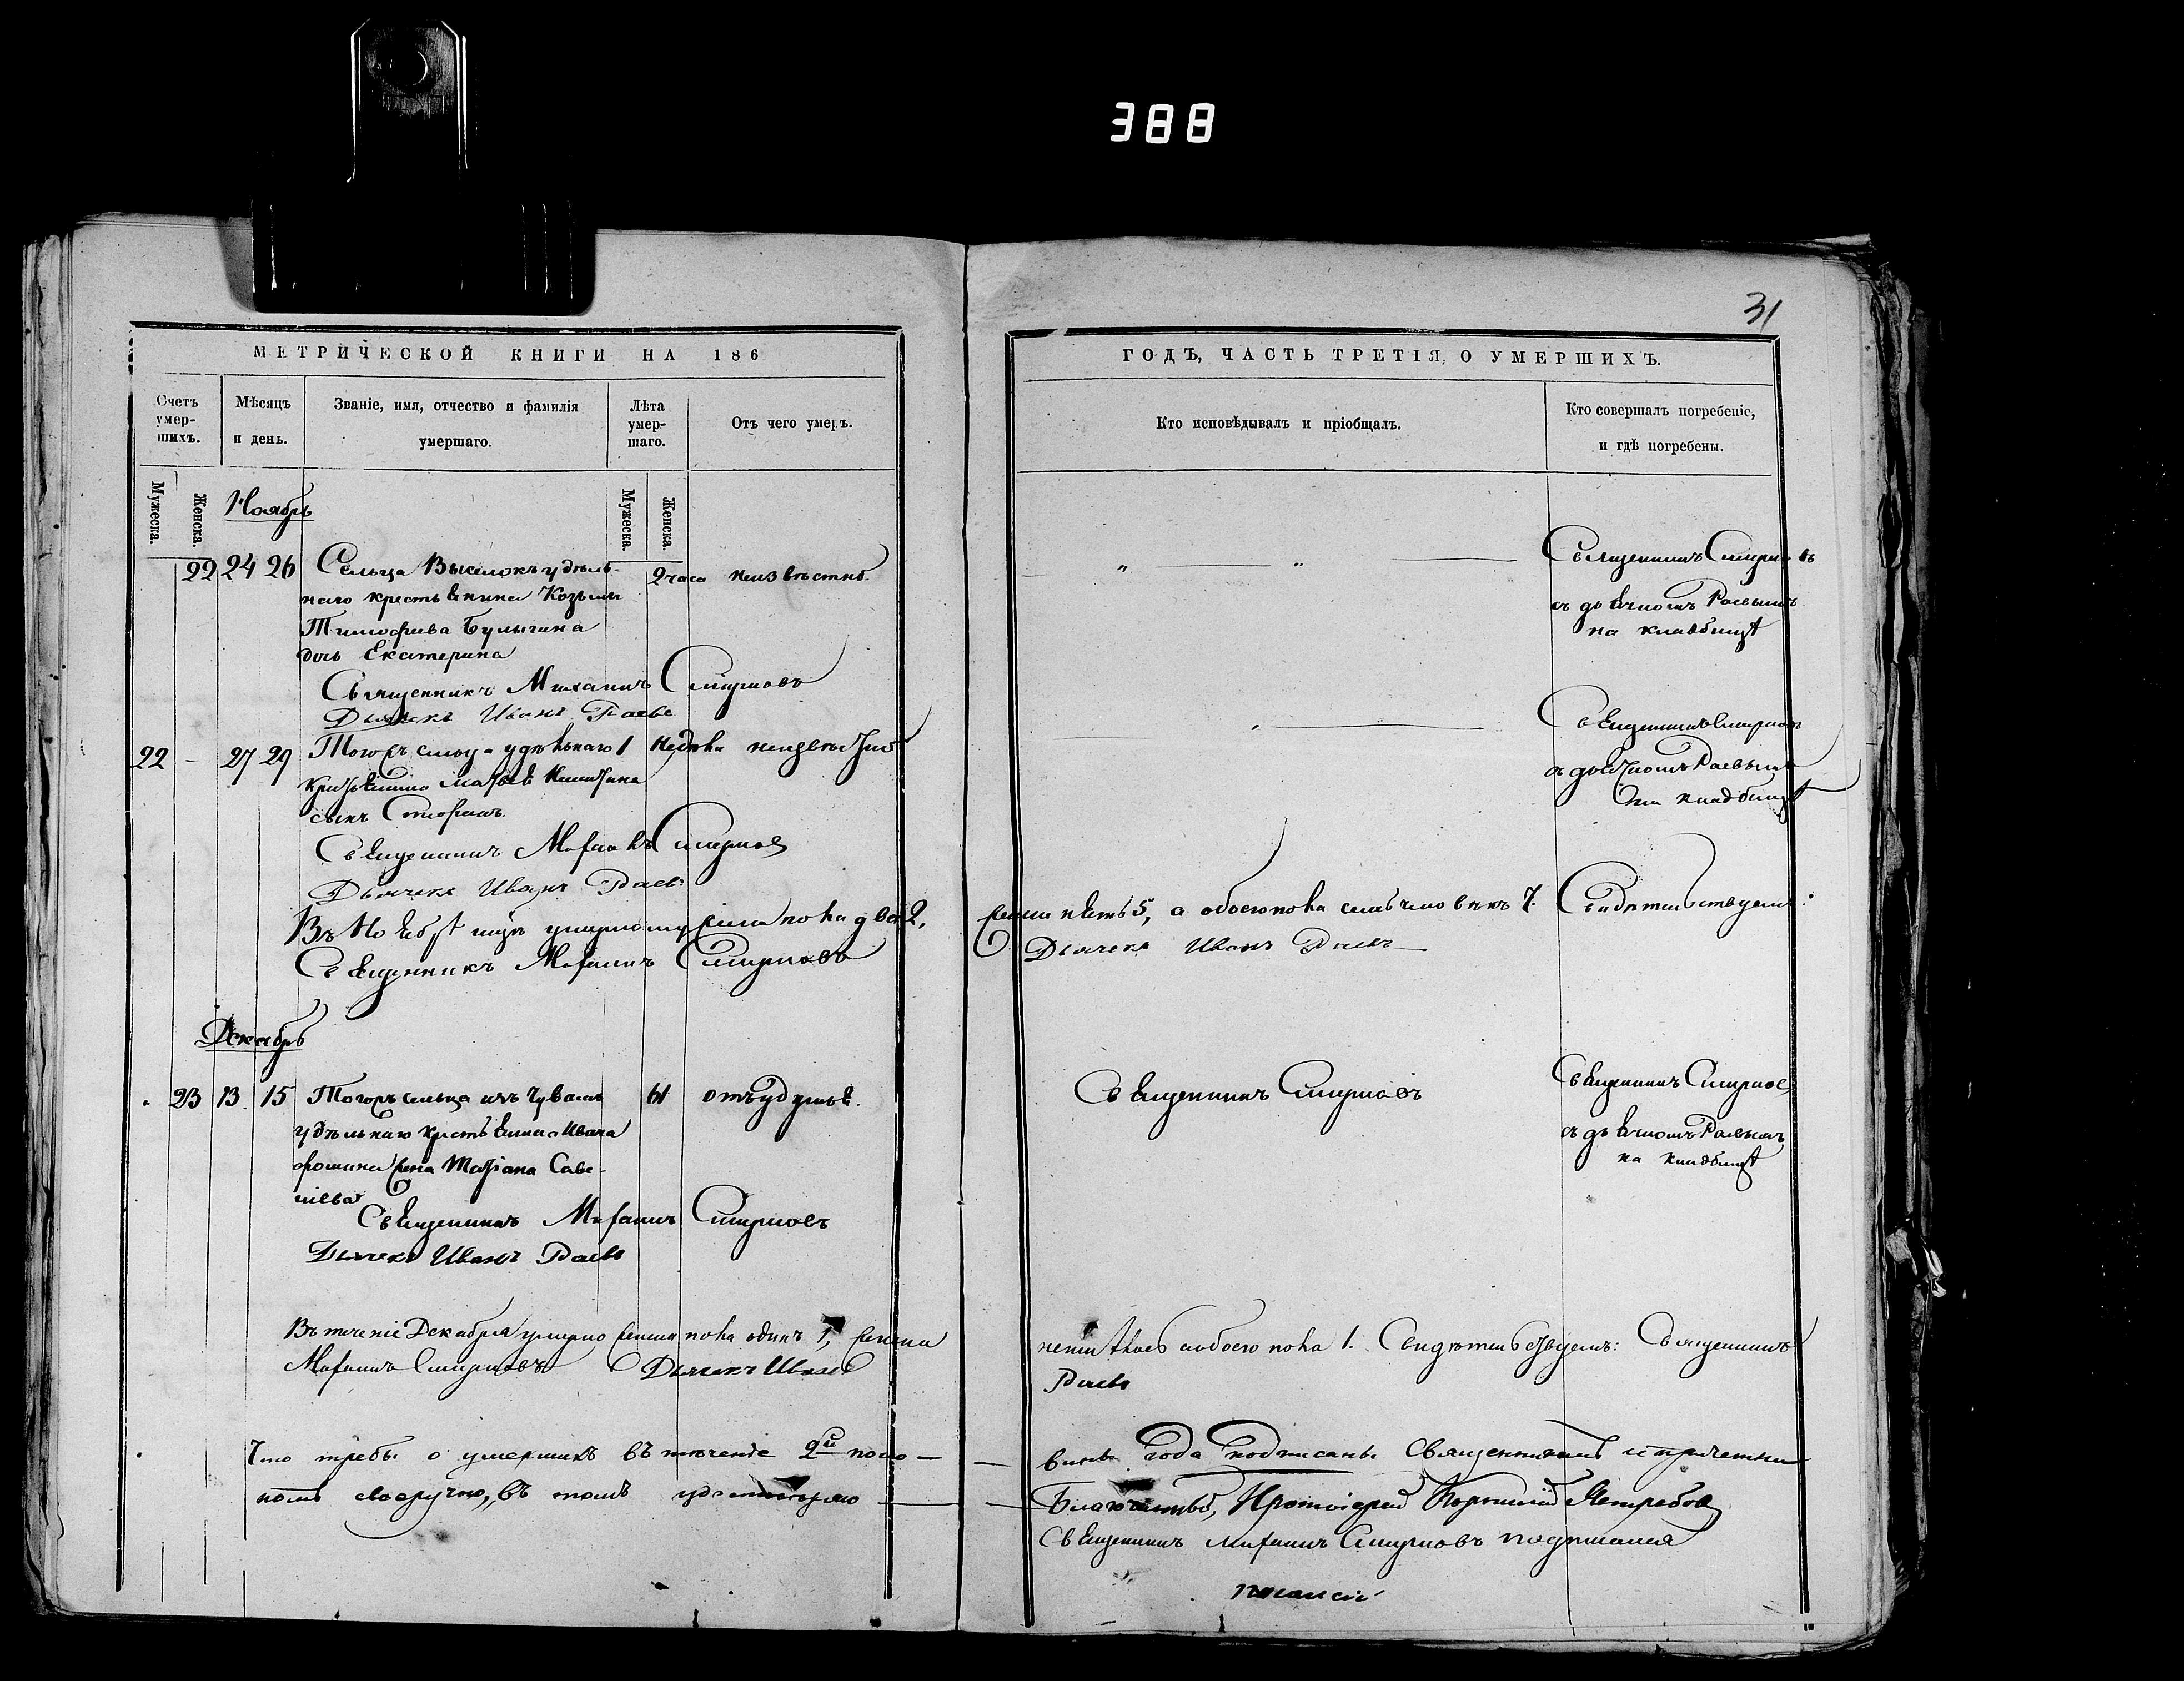 388
31
МЕТРИЧЕСКОЙ КНИГИ НА 186
ГОДЪ, ЧАСТЬ ТРЕТІЯ, О УМЕРШИХЪ.
Счетъ умер-
шихъ.
Мѣсяцъ
и день.
Званіе, имя, отчество и фамилія
умершаго.
Лѣта
умер-
шаго.
Отъ чего умеръ.
Кто исповѣдывалъ и пріобщалъ.
Кто совершалъ погребеніе,
и гдѣ погребены.
Мужеска.
Женска.
Мужеска.
Женска.
Ноябрь
22 24 26 Сельца Выселокъ удѣль-
наго крестьянина Козьмы
Тимофеева Булычина
дочь Екатерина
2 часа неизвѣстно.
Священникъ Смирновъ
съ дьячкомъ Раевымъ
на кладбищѣ
Священникъ Михаилъ Смирновъ
Дьячекъ Иванъ Раевъ
22 – 27 29 Тогожъ сельца удѣльнаго
крестьянина Матвея Никитина
сынъ
1 недѣли неизвѣстно
Священникъ Смирновъ
съ дьячкомъ Раевымъ
на кладбищѣ
Священникъ Михаилъ Смирновъ
Дьячекъ Иванъ Раевъ
Въ Ноябрѣ умерло пола два 2,
пять 5, а обоего пола семь человѣкъ 7. Свидѣтельствуемъ:
Священникъ Михаилъ Смирновъ
Дьячекъ Иванъ Раевъ
Декабрь
23 13 15 Тогожъ сельца изъ Чувашъ
удѣльнаго крестьянина Ивана
Фомина жена Татіана Саве-
ліева
61 отъ удушья.
Священникъ Смирновъ
Священникъ Смирновъ
съ дьячкомъ Раевымъ
на кладбищѣ
Священникъ Михаилъ Смирновъ
Дьячекъ Иванъ Раевъ
Въ теченіе Декабря умерло пола одинъ 1,
обоего пола 1. Свидѣтельствуемъ: Священникъ
Михаилъ Смирновъ Дьячекъ Иванъ
Раевъ
Что требы о умершихъ въ теченіе 2й поло-
вины года подписаны Священникомъ и причетни
комъ своеручно, въ томъ удостовѣряю
Протоіерей Ястребовъ
Священникъ Михаилъ Смирновъ